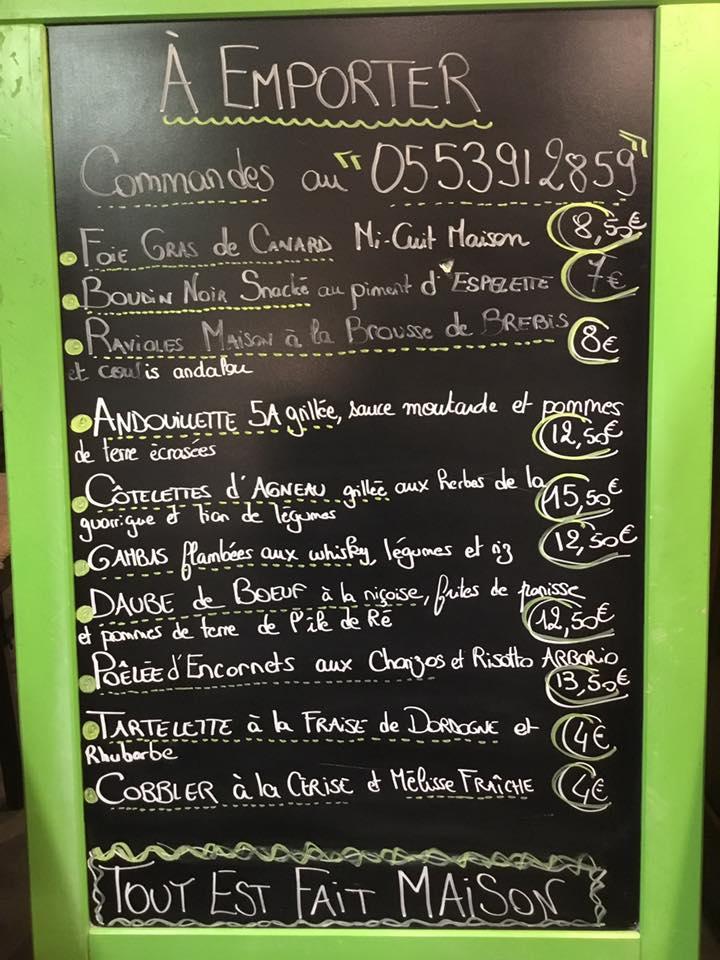 À EMPORTER
Commandes au "0553912859"
Foie Gras de Canard Mi-Cuit Maison 8,50€
Boudin Noir Snacké au piment d'Espelette 7€
Ravioles Maison à la Brousse de Brebis
et coulis andalou 8€
Andouillette 5A grillée, sauce moutarde et pommes
de terre écrasées 12,50€
Côtelettes d'Agneau grillée aux herbes de la
guarrigue et tian de légumes 15,50€
Gambas flambées aux whisky, légumes et riz 12,50€
Daube de Boeuf à la niçoise, frites de panisse
et pommes de terre de l'île de Ré 12,50€
Poêlée d'Encornets aux Chorizos et Risotto Arborio
13,50€
Tartelette à la Fraise de Dordogne et
Rhubarbe 4€
Cobbler à la Cerise et Mélisse Fraîche 4€
Tout Est Fait Maison